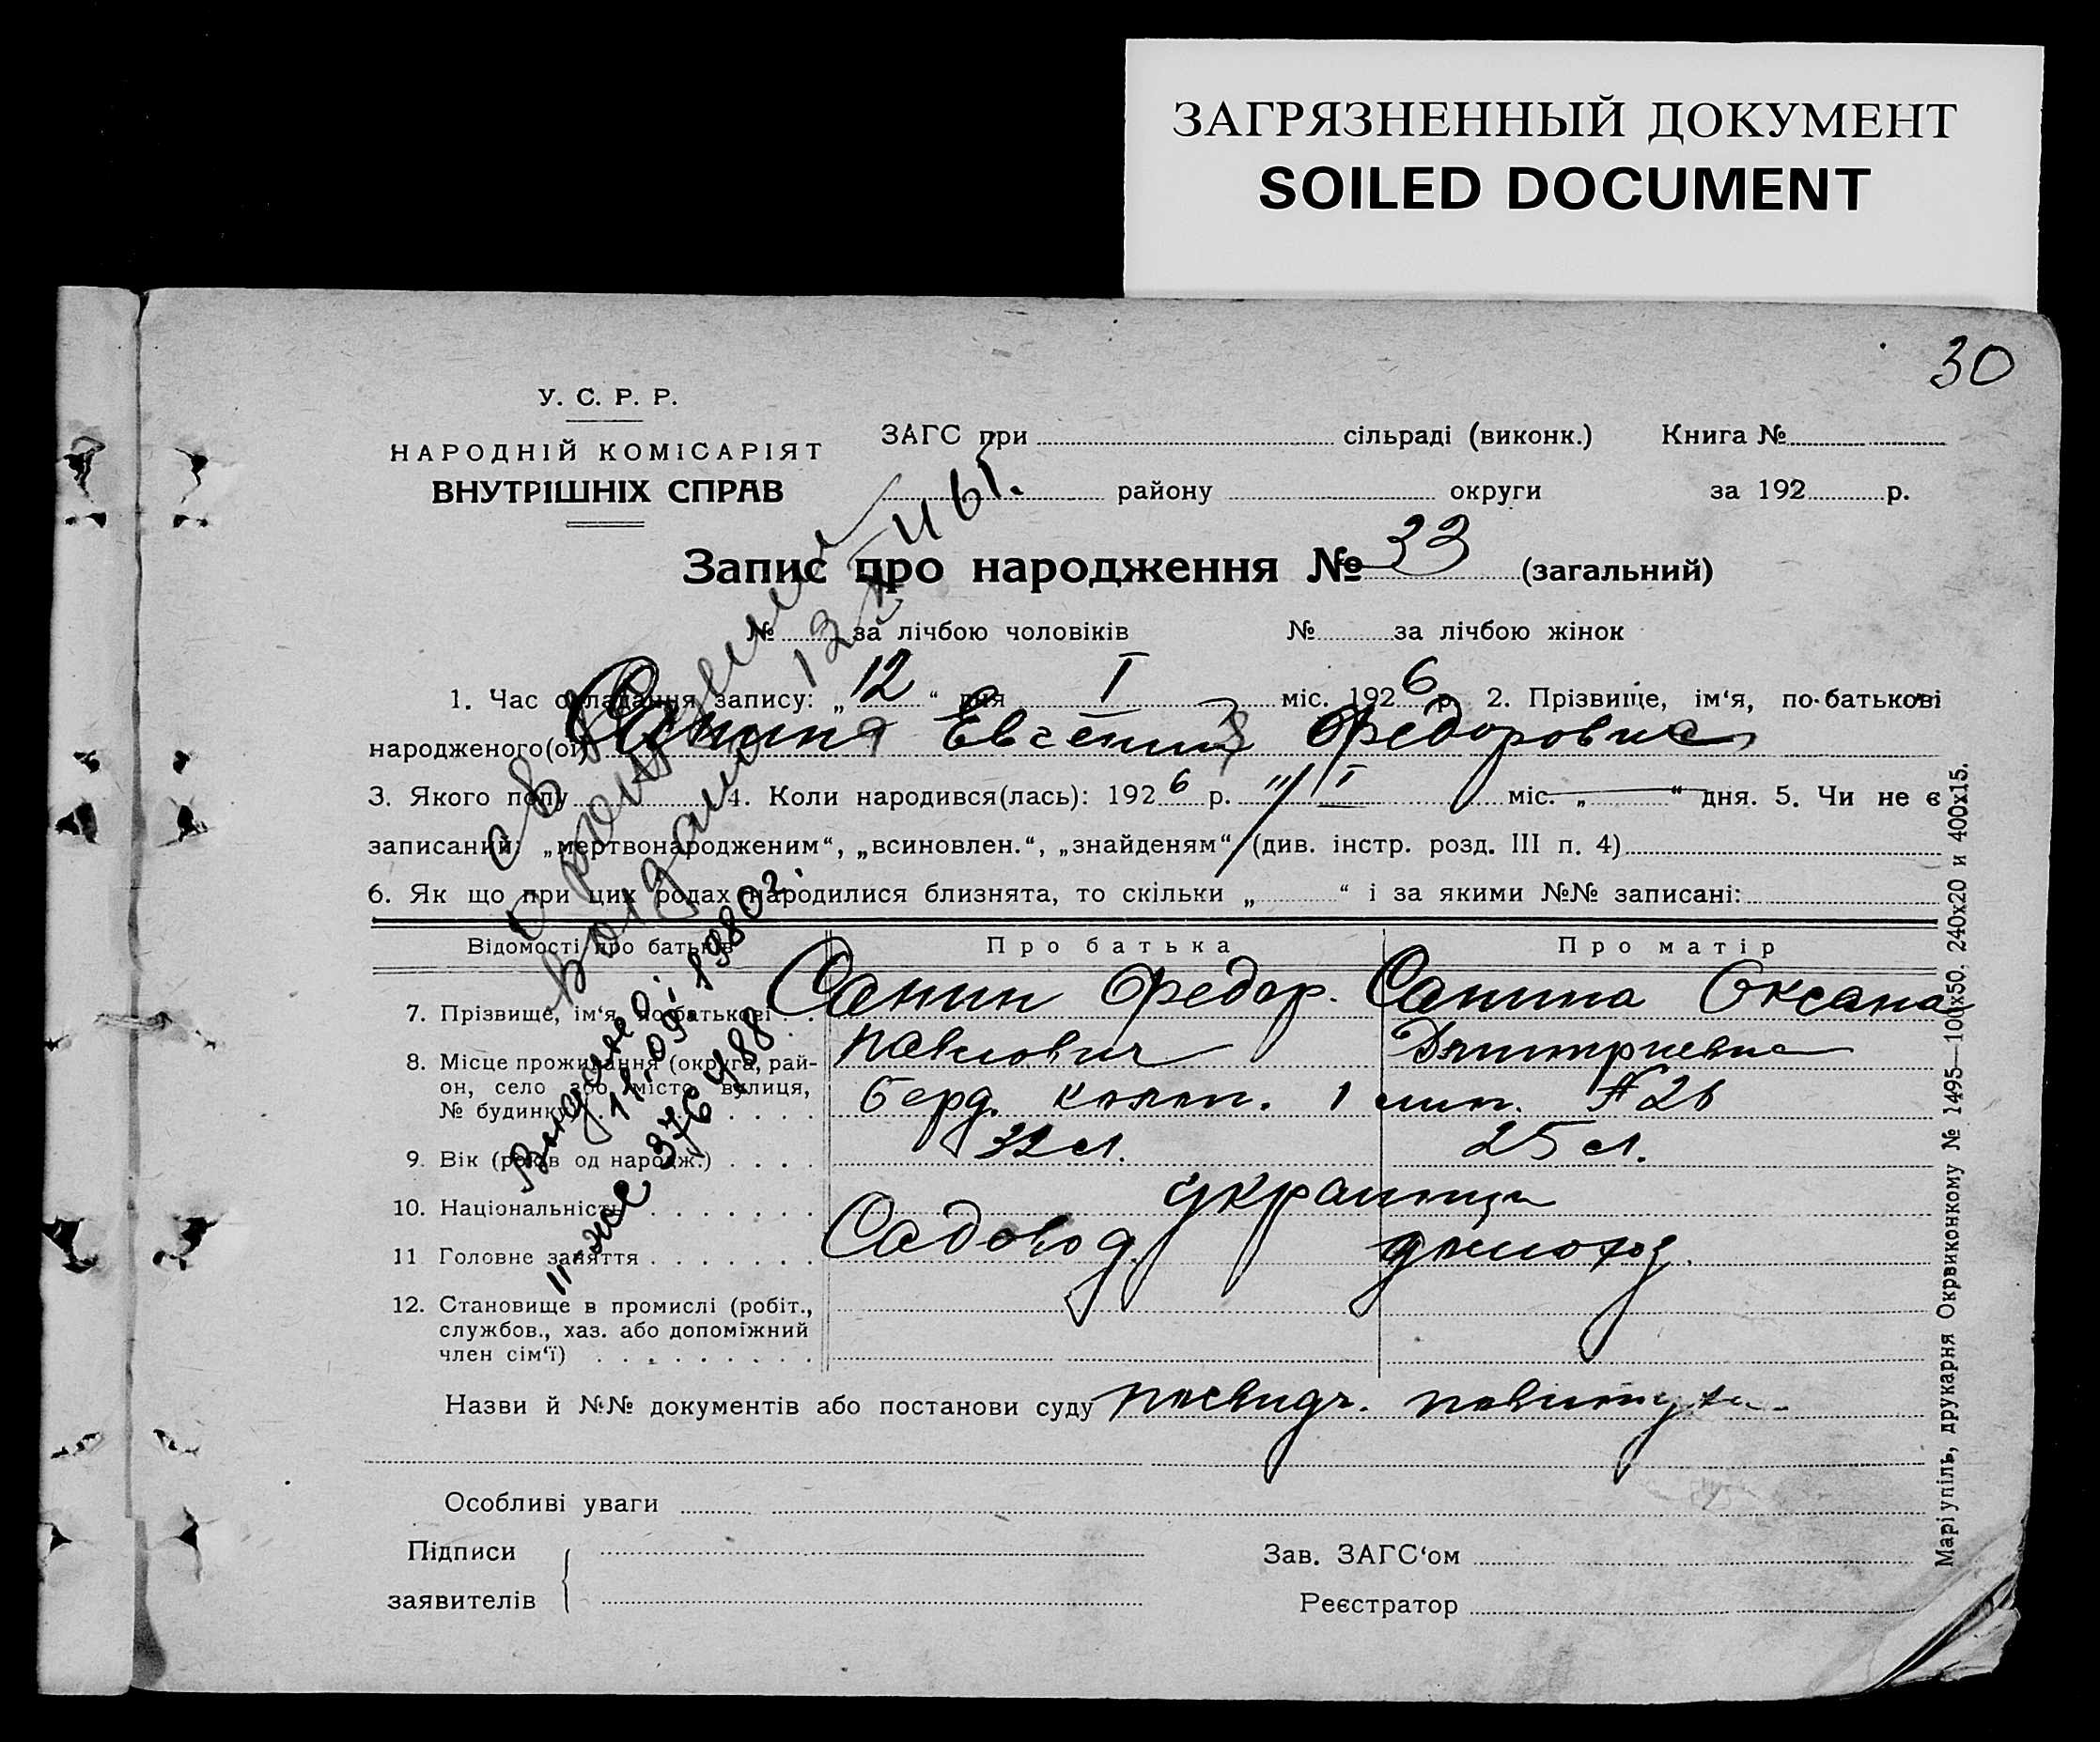 ЗАГРЯЗНЕННЫЙ ДОКУМЕНТ
SOILED DOCUMENT
30
У. С. Р. Р.
НАРОДНІЙ КОМІСАРІЯТ
ВНУТРІШНІХ СПРАВ
ЗАГС при сільраді (виконк.) Книга №
району округи за 192 р.
Запис про народження № 33 (загальний)
№ за лічбою чоловіків № за лічбою жінок
1. Час складання запису: „12“ дня I міс. 1926 р. 2. Прізвище, ім‘я, по-батькові
народженого(ої) Санин Евгений Федоровис
3. Якого полу 4. Коли народився(лась): 1926 р. 11/I міс. „ “ дня. 5. Чи не є
записаний: „мертвонародженим“, „всиновлен.“, „знайденям“ (див. інстр. розд. III п. 4)
6. Як що при цих родах народилися близнята, то скільки „ “ і за якими №№ записані:
Відомості про батьків Про батька Про матір
7. Прізвище, ім‘я, по-батькові Санин Федор. Санина Оксана
Павлович Дмитриевна
8. Місце проживання (округа, рай-
он, село або місто, вулиця,
№ будинку) Берд. 1 лип. № 26
9. Вік (років од народж.) 32 л. 25 л.
10. Національність украинцы
11 Головне заняття Садовод домохоз.
12. Становище в промислі (робіт.,
службов., хаз. або допоміжний
член сім‘ї)
Назви й №№ документів або постанови суду посвидч. повитухи
Особливі уваги
Підписи
заявителів
Зав. ЗАГС‘ом
Реєстратор
Св
о рождении
выдано
12 X 61.
Выдано:
11.09.1980г.
376488
Маріупіль, друкарня Окрвиконкому № 1495—100х50. 240х20 и 400х15.